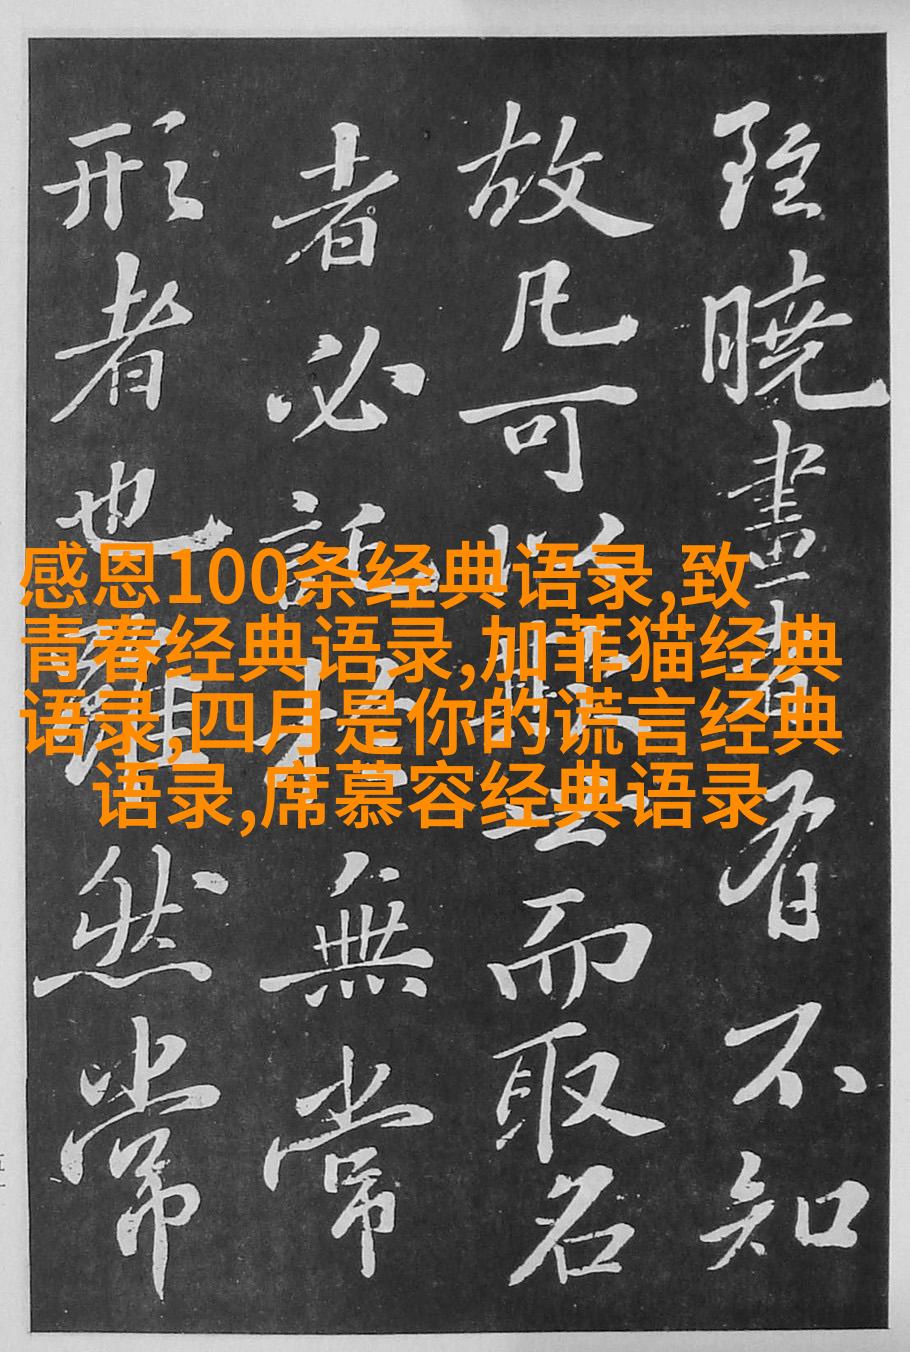 雖曉畫者有不知
故凡可以欺世而取名
者必託於無常
形者也雖然常
感恩100条经典语录,致
青春经典语录,加菲猫经典
语录,四月是你的谎言经典
语录,席慕容经典语录